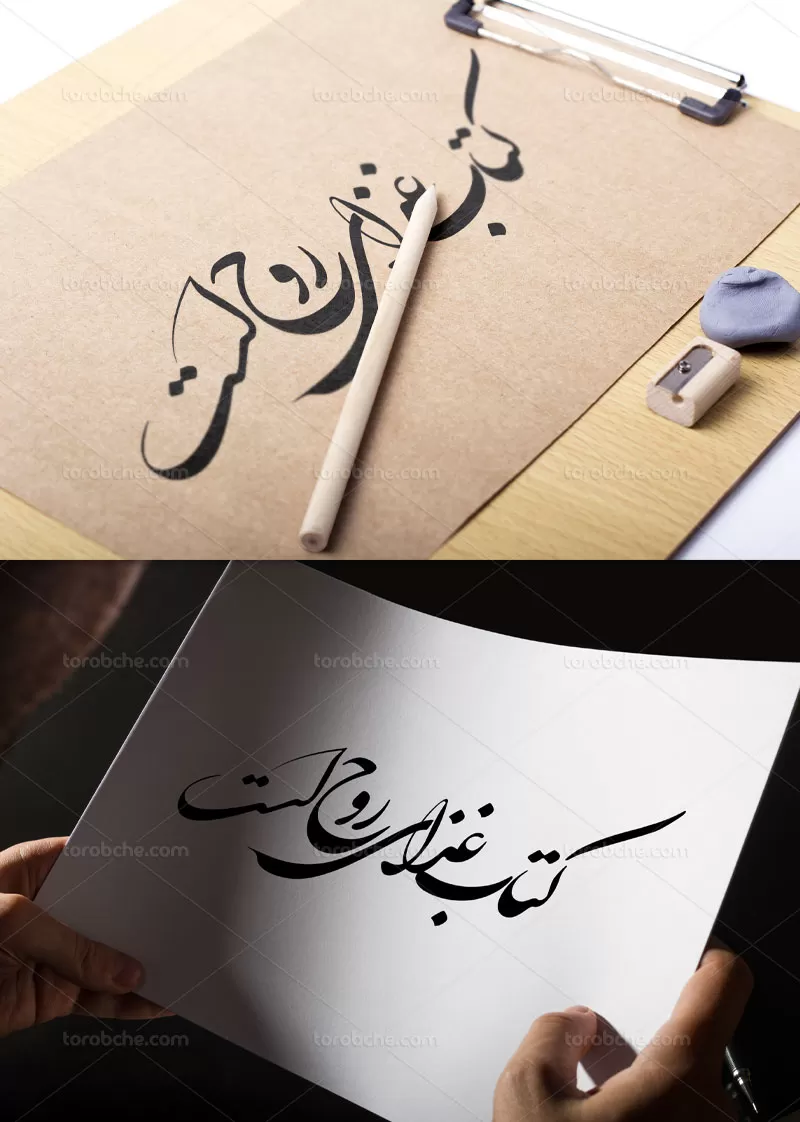 torobche.com torobche.com torobche.com
کتاب غذای روح است
torobche.com torobche.com torobche.com
torobche.com torobche.com torobche.com
torobche.com torobche.com torobche.com
کتاب غذای روح است
torobche.com torobche.com torobche.com
torobche.com torobche.com torobche.com